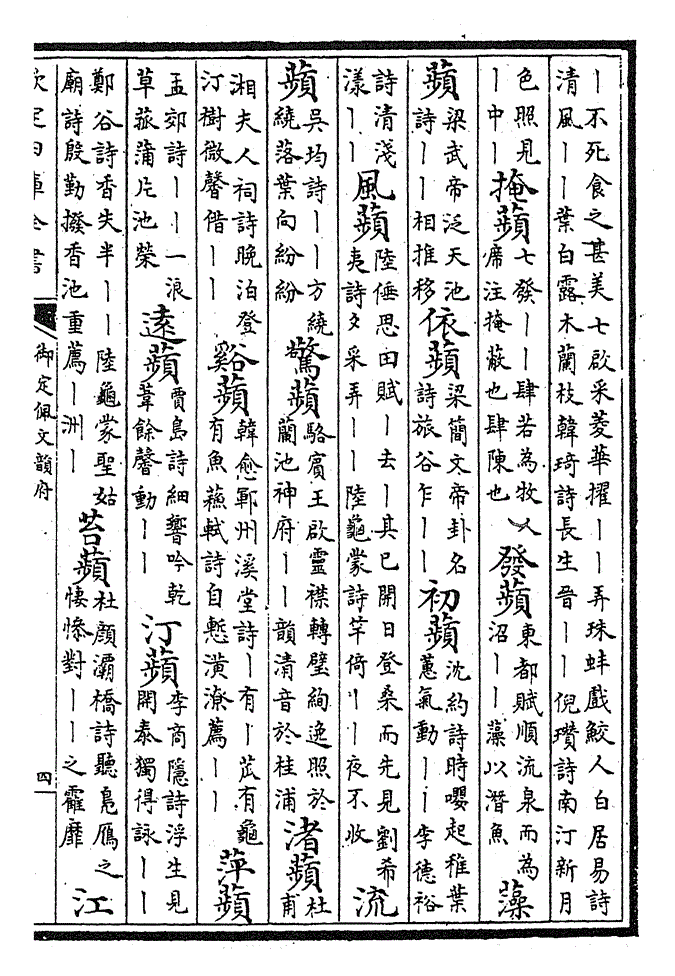 丨不死食之甚美七啟采菱華擢丨丨弄珠蚌戲鮫人白居易詩
清風丨丨葉白露木蘭枝韓琦詩長生晋丨丨倪瓚詩南汀新月
色照見
丨中丨
掩蘋
七發丨丨肆若為牧人
席注掩蔽也肆陳也
發蘋
東都賦順流泉而為
沼丨丨藻以潛魚
藻
蘋
梁武帝泛天池
詩丨丨相推移
依蘋
梁簡文帝卦名
詩旅谷乍丨丨
初蘋
沈約詩時嚶起稚葉
蕙氣動丨丨李德裕
詩清淺
漾丨丨
風蘋
陸倕思田賦丨去丨其已開日登桑而先見劉希
夷詩夕采弄丨丨陸龜蒙詩竿倚丨丨夜不收
流
蘋
吳均詩丨丨方繞
繞落葉向紛紛
驚蘋
駱賓王啟靈襟轉璧絢逸照於
蘭池神府丨丨韻清音於桂浦
渚蘋
杜
甫
湘夫人祠詩晚泊登
汀樹微馨借丨丨
谿蘋
韓愈鄆州溪堂詩丨有丨苽有龜
有魚蘇軾詩自慙潢潦薦丨丨
萍蘋
孟郊詩丨丨一浪
草菰蒲片池榮
遠蘋
賈島詩細響吟乾
葦餘馨動丨丨
汀蘋
李商隱詩浮生見
開泰獨得詠丨丨
鄭谷詩香失半丨丨陸龜蒙聖姑
廟詩殷勤撥香池重薦丨洲丨
苔蘋
杜顔灞橋詩聽鳧鴈之
悽慘對丨丨之靃靡
江
欽定四庫全書
御定佩文韻府
四